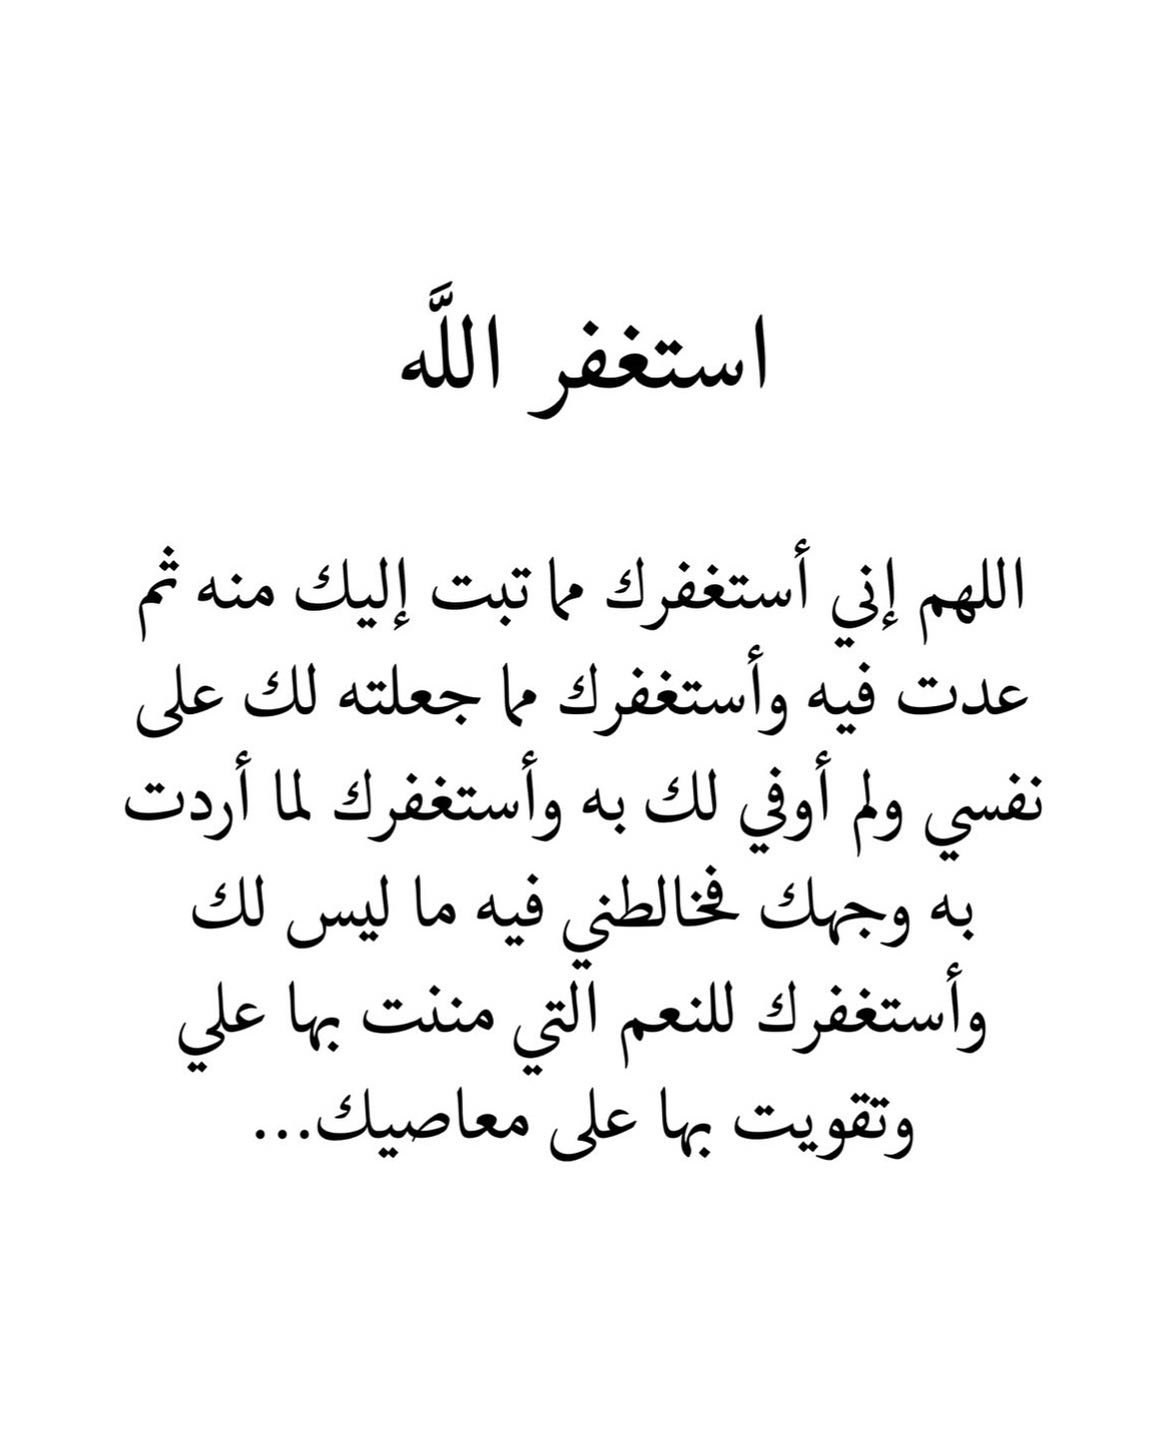 استغفر اللَّه
اللهم إني أستغفرك مما تبت إليك منه ثم
عدت فيه وأستغفرك مما جعلته لك على
نفسي ولم أوفي لك به وأستغفرك لما أردت
به وجهك فخالطني فيه ما ليس لك
وأستغفرك للنعم التي مننت بها علي
وتقويت بها على معاصيك...